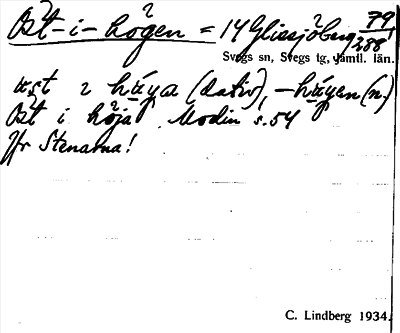 Öst-i-högen = 14 Glissjöberg 79/288
Svegs sn, Svegs tg, Jämtl. län.
øst i håɣa (dativ), -håɣen (n.)
Öst i höja Modin s. 54
Jfr Stenarna!
C. Lindberg 1934.